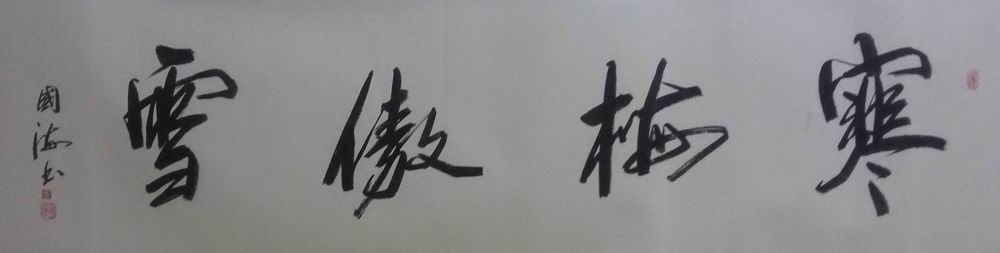 寒梅傲雪
國海书